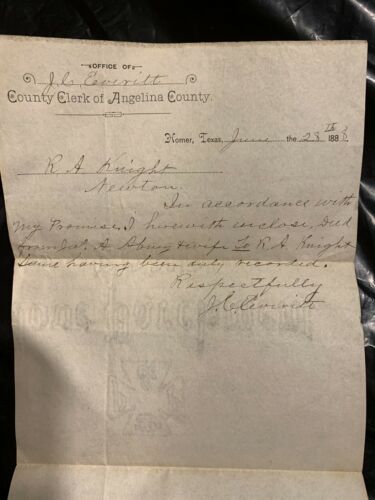 OFFICE OF
J. C. Everitt
County Clerk of Angelina County.
Homer, Texas, June the 28th 1888
R A Knight
Newton.
In accordance with
My Promise, I herewith enclose, Deed
from A & wife To R A Knight
Same having been duly recorded.
Respectfully
J. C. Everitt